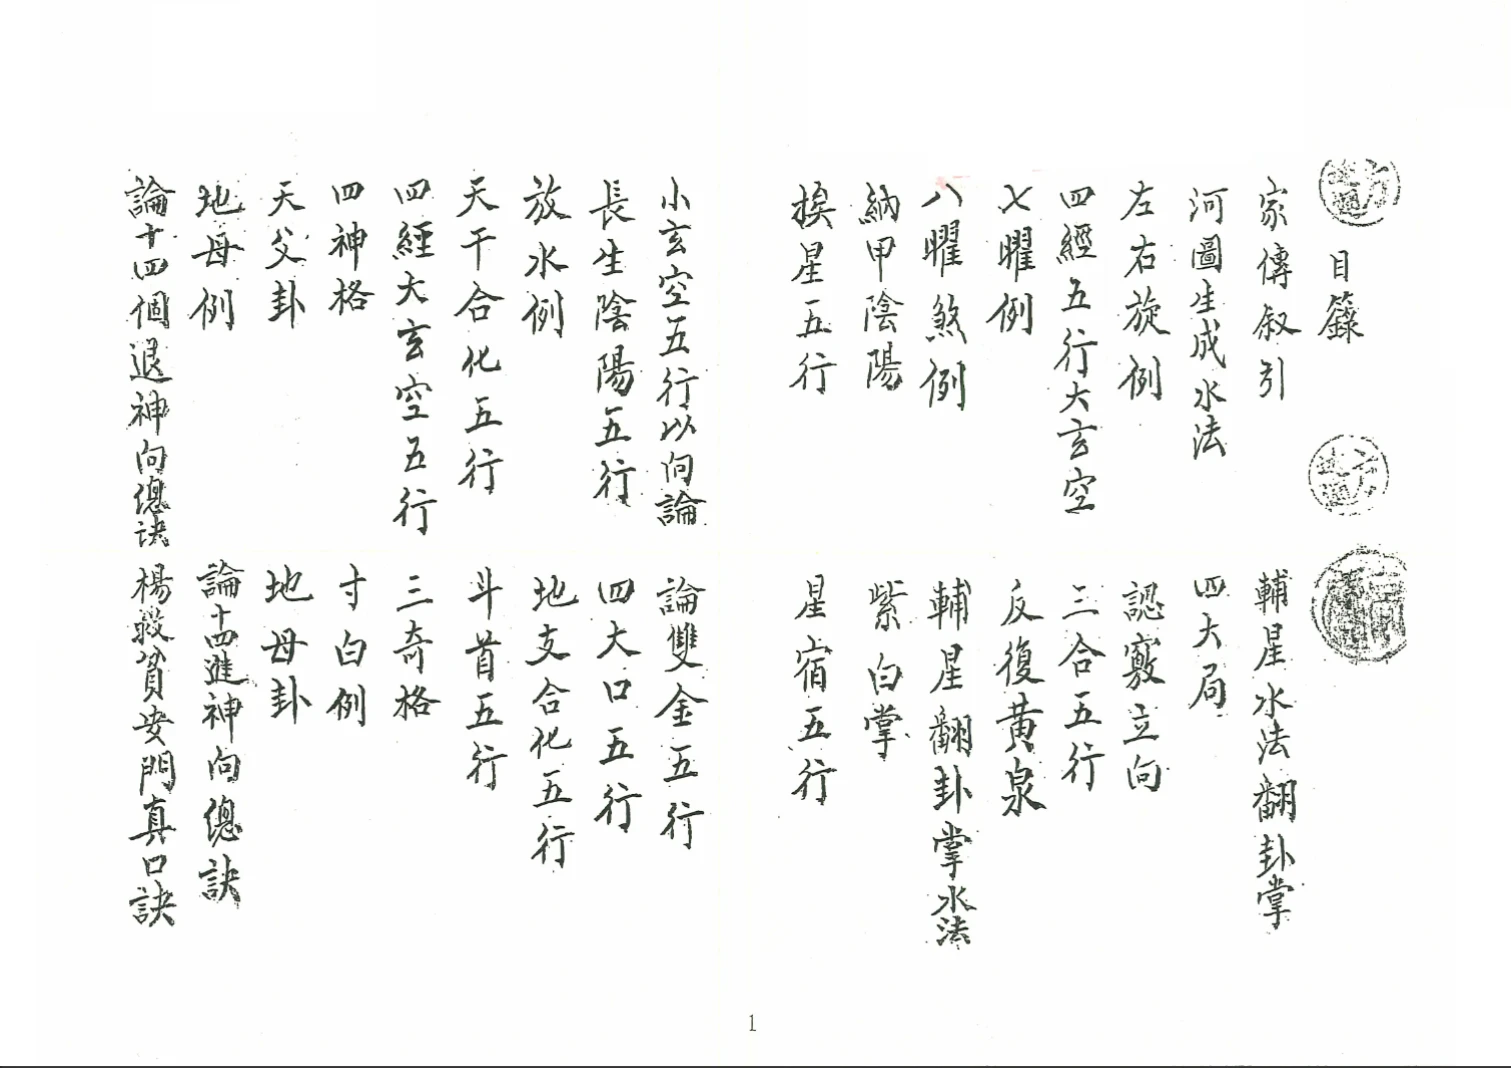 目籙
家傳叙引
輔星水法翻卦掌
河圖生成水法
四大局
左右旋例
認竅立向
四經五行大玄空
三合五行
七曜例
反復黃泉
八曜煞例
輔星翻卦掌水法
納甲陰陽
紫白掌
挨星五行
星宿五行
小玄空五行以向論
論雙金五行
長生陰陽五行
四大口五行
放水例
地支合化五行
天干合化五行
斗首五行
四經大玄空五行
三奇格
四神格
寸白例
天父卦
地母卦
地母例
論十四進神向總訣
論十四個退神向總訣
楊救貧安門真口訣
1